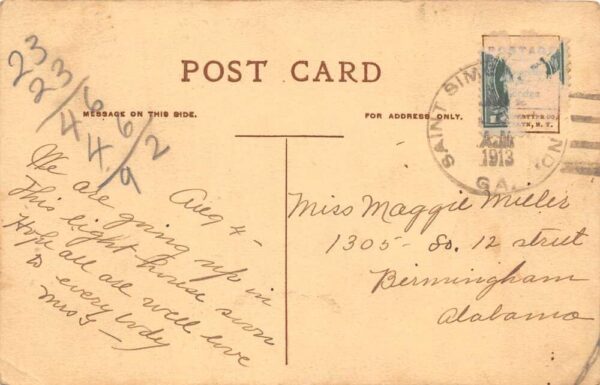 POST CARD
MESSAGE ON THIS SIDE.
FOR ADDRESS ONLY.
23
23/66
44/92
Aug 4 -
We are going up in
This light house soon
Hope all are well love
to every body
SAINT SIM
A.M.
1913
GA.
Miss Maggie Miller
1305 - So. 12 street
Birmingham
Alabama